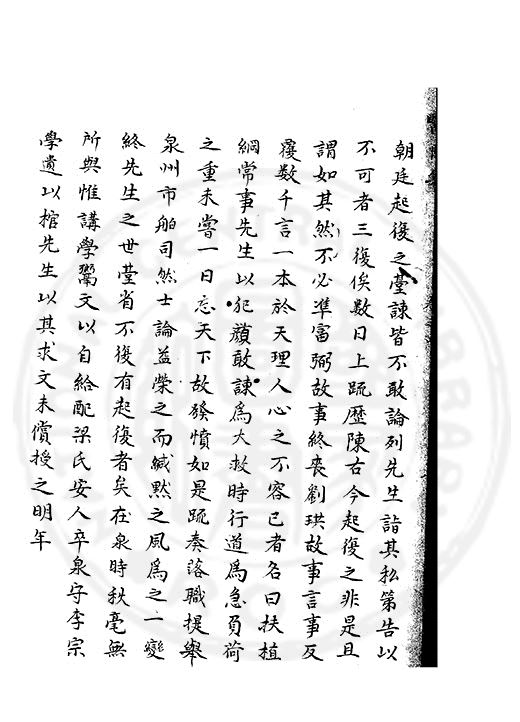 朝廷起復之臺諫皆不敢論列先生詣其私第告以
不可者三復俟數日上疏歷陳古今起復之非是且
謂如其然不必準富弼故事終喪劉珙故事言事反
覆數千言一本於天理人心之不容已者名曰扶植
綱常事先生以犯顏敢諫為大救時行道為急負荷
之重未嘗一日忘天下故發憤如是疏奏落職提舉
泉州市舶司然士論益榮之而緘默之風為之一變
終先生之世臺省不復有起復者矣在泉時秋毫無
所與惟講學鬻文以自給配梁氏安人卒泉守李宗
學遺以棺先生以其求文未償授之明年